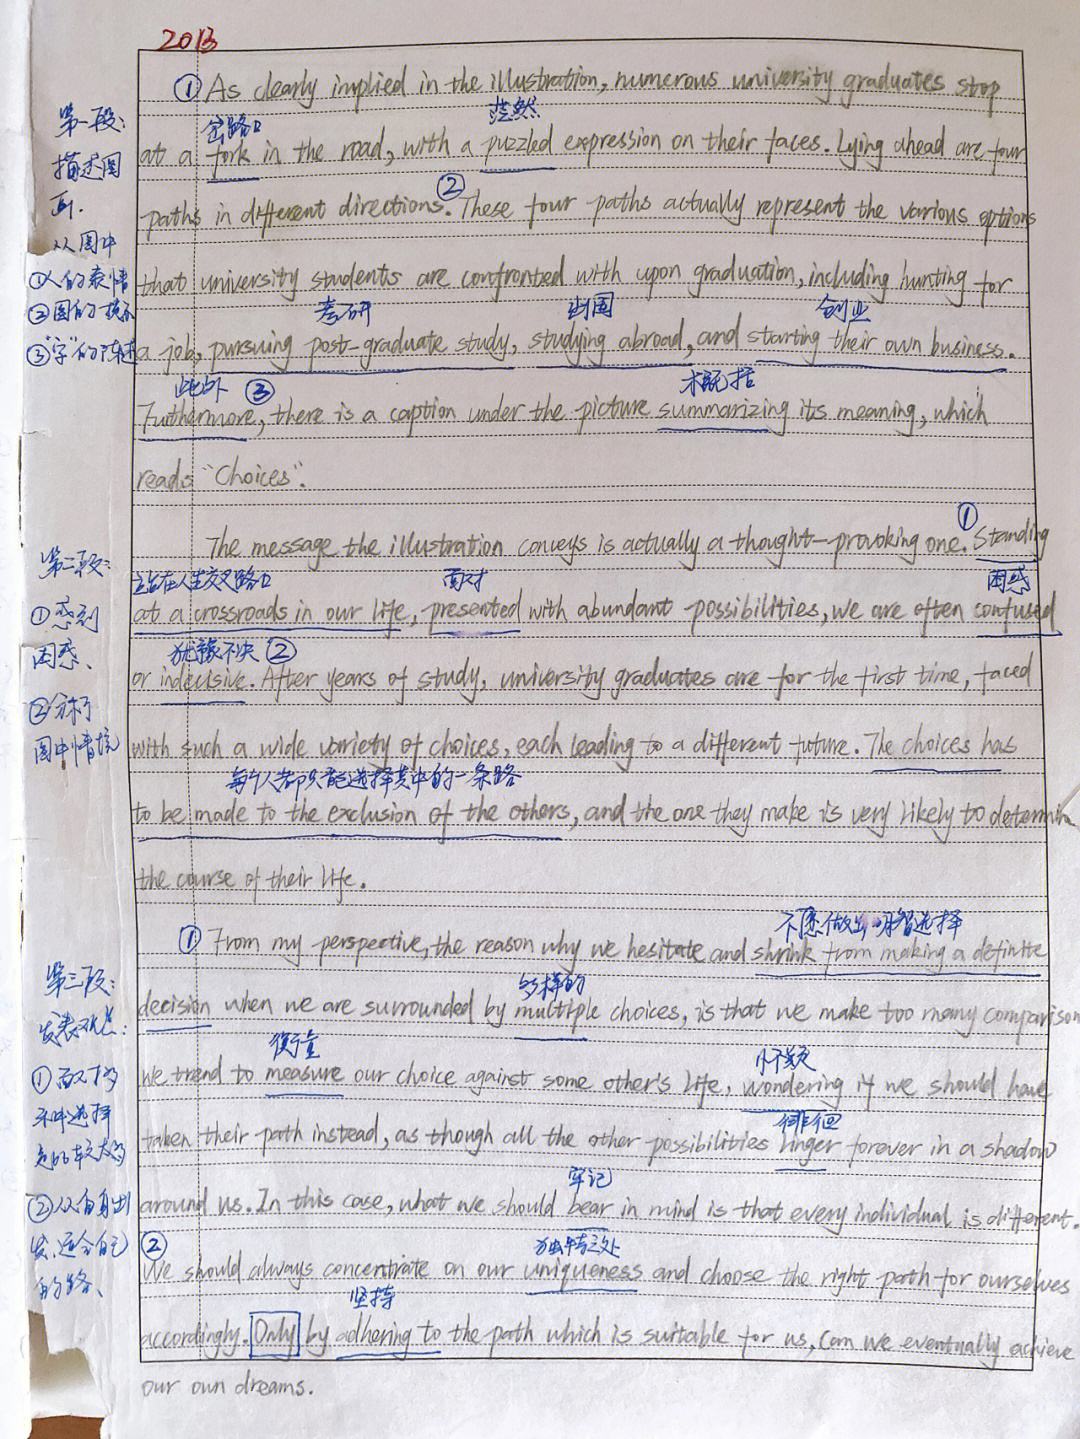 2013
① As clearly implied in the illustration, numerous university graduates stop
第一段:
岔路口
茫然
at a fork in the road, with a puzzled expression on their faces. Lying ahead are four
描述图
画.
paths in different directions. ② These four paths actually represent the various options
从图中
①人的表情
that university students are confronted with upon graduation, including hunting for
②图的
考研
出国
创业
③"字"的
a job, pursuing post-graduate study, studying abroad, and starting their own business.
此外 ③
概括
Futhermore, there is a caption under the picture summarizing its meaning, which
reads "Choices".
The message the illustration conveys is actually a thought-provoking one. ① Standing
第二段:
站在人生交叉路口
面对
困惑
①感到
at a crossroads in our life, presented with abundant possibilities, we are often confused
困惑、
犹豫不决 ②
or indecisive. After years of study, university graduates are for the first time, faced
②分析
图中情境
with such a wide variety of choices, each leading to a different future. The choices has
每个人都只能选择其中的一条路
to be made to the exclusion of the others, and the one they make is very likely to determin
the course of their life.
不愿做出明智选择
① From my perspective, the reason why we hesitate and shrink from making a definite
第三段:
多样的
decision when we are surrounded by multiple choices, is that we make too many comparison
发表观点:
衡量
怀疑
①面对
we trend to measure our choice against some other's life, wondering if we should have
选择
徘徊
taken their path instead, as though all the other possibilities linger forever in a shadow
牢记
②从自身出
around us. In this case, what we should bear in mind is that every individual is different.
发,适合自己
②
独特之处
We should always concentrate on our uniqueness and choose the right path for ourselves
的路、
坚持
accordingly. Only by adhering to the path which is suitable for us, can we eventually achieve
our own dreams.